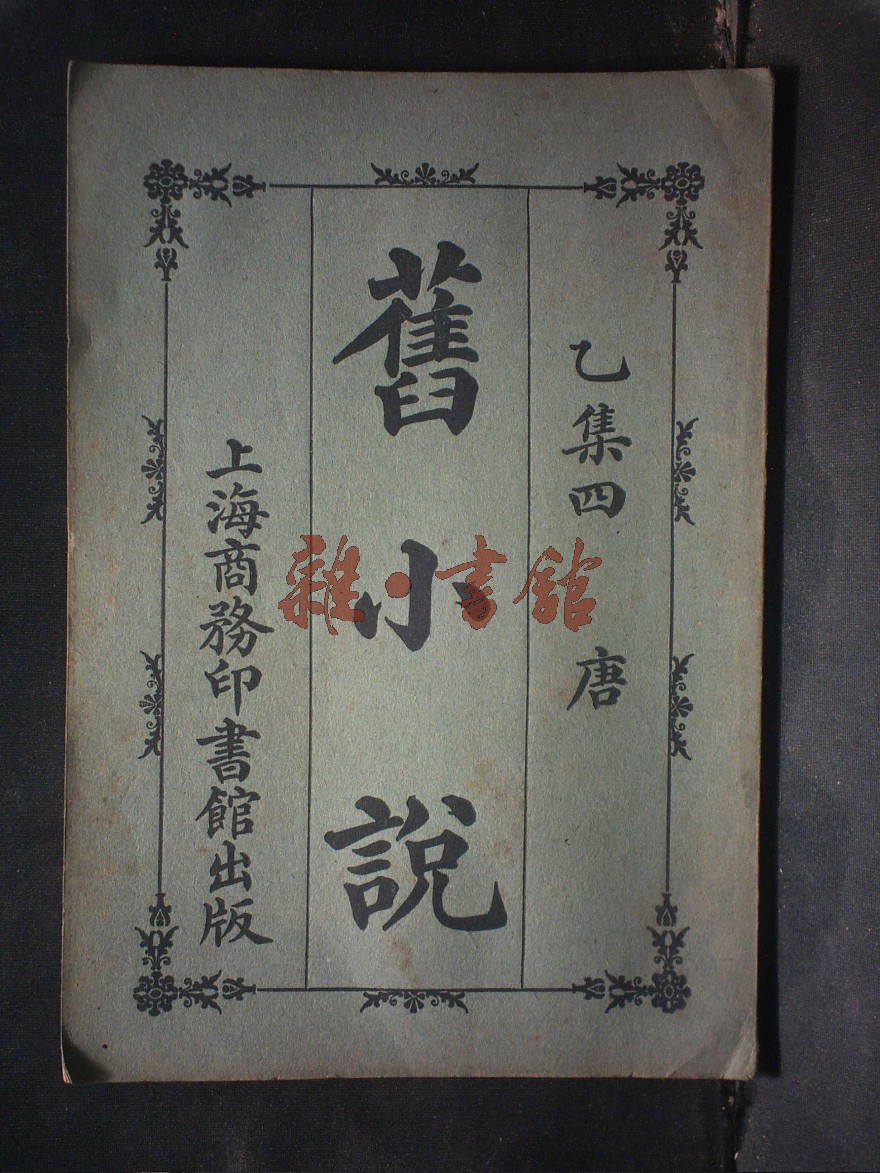 乙集四 唐
舊小說
上海商務印書館出版
雜·書館